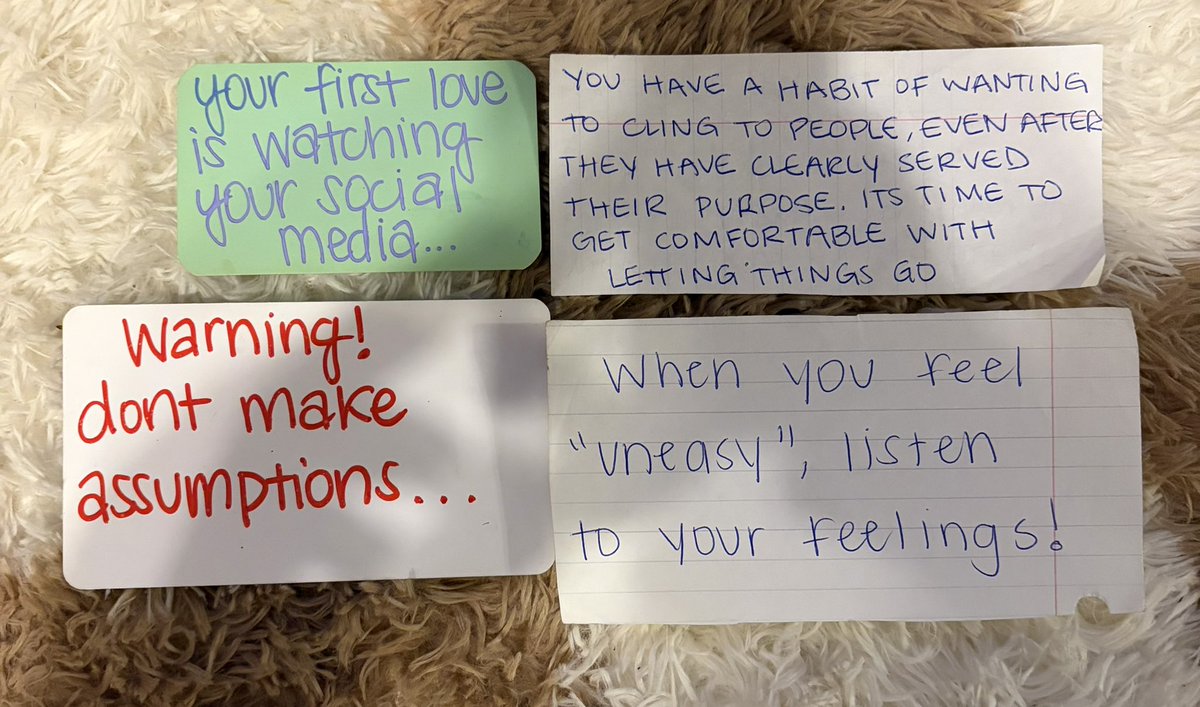 your first love
is watching
your social
media...
YOU HAVE A HABIT OF WANTING
TO CLING TO PEOPLE, EVEN AFTER
THEY HAVE CLEARLY SERVED
THEIR PURPOSE. ITS TIME TO
GET COMFORTABLE WITH
LETTING THINGS GO
Warning!
dont make
assumptions...
When you feel
"uneasy", listen
to your feelings!